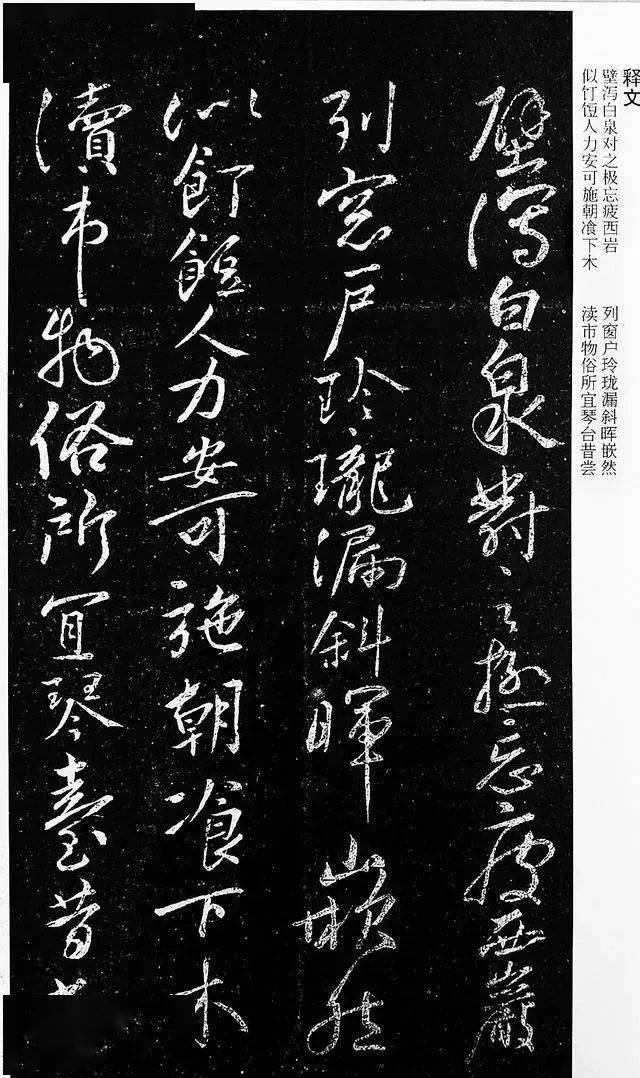 释文
壁泻白泉对之极忘疲西岩
列窗户玲珑漏斜晖嵌然
似饤饾人力安可施朝飡下木
渎市物俗所宜琴台昔尝
壁瀉白泉對之極忘疲西巖
列窓戶玲瓏漏斜暉嵌然
似飣餖人力安可施朝飡下木
瀆市物俗所宜琴臺昔